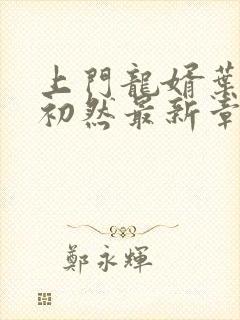 上門龍婿葉
初然最新章
鄭永輝